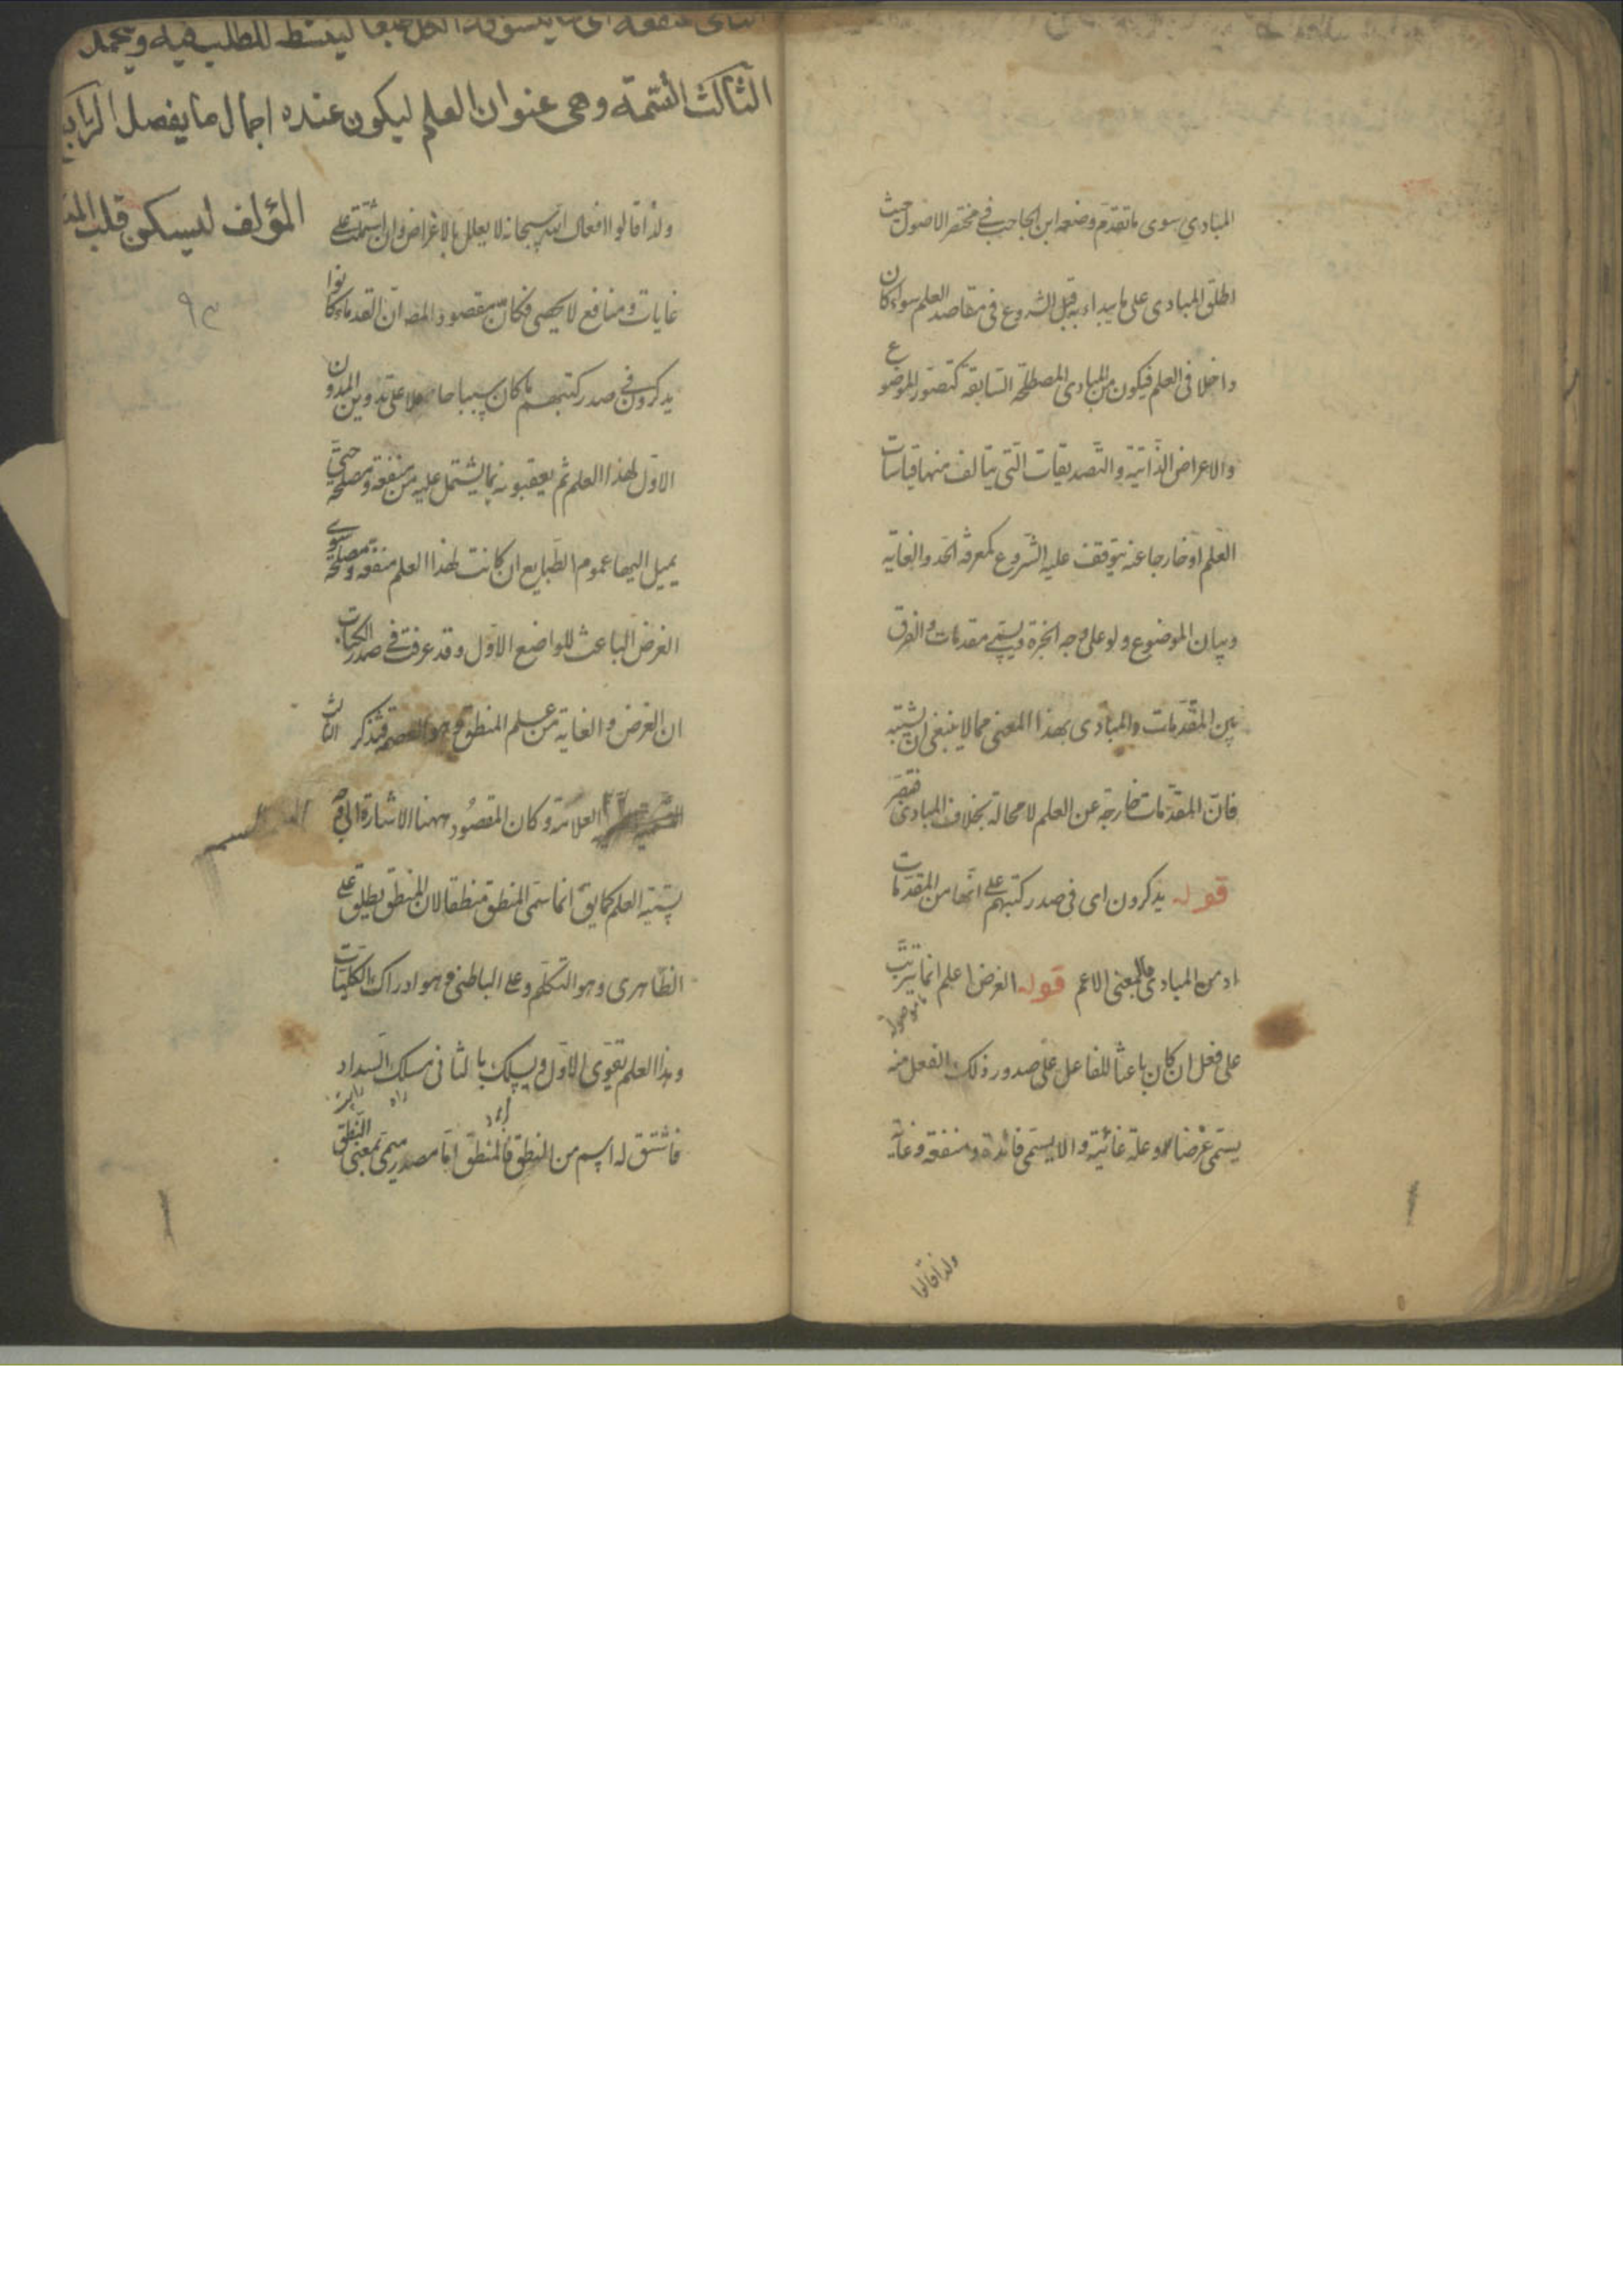 المبادي سوى ما تقدم وضعه ابن الحاجب في مختصر الاصول حيث
اطلق المبادى على ما يبداء به قبل الشروع فى مقاصد العلم سواء كان
داخلا فى العلم فيكون من المبادى المصطلحة السابقة كتصور الموضوع
والاعراض الذاتية والتصديقات التى يتالف منها قياسات
العلم او خارجا عنه يتوقف عليه الشروع كمعرفة الحد والغاية
وبيان الموضوع ولو على وجه الخبرة ويسمى مقدمات والفرق
بين المقدمات والمبادى بهذا المعنى مما لا ينبغى ان يشتبه
فان المقدمات خارجة عن العلم لا محالة بخلاف المبادى فتبصر
قوله يذكرون اى فى صدر كتبهم على انها من المقدمات
او من المبادى بالمعنى الاعم قوله الغرض اعلم انما يترتب
على فعل ان كان باعثا للفاعل على صدور ذلك الفعل منه
يسمى غرضا وعلة غائية والا يسمى فائدة ومنفعة وغاية
ولذا قالوا
للطلب فيه ويتحمل
الثالث التسمة وهى عنوان العلم ليكون عنده اجمال ما يفصل
المؤلف ليسكن قلب
ولذا قالوا افعال الله سبحانه لا يعلل بالاغراض وان اشتملت على
غايات ومنافع لا يحصى فكان مقصود المصـ ان القدماء كانوا
يذكرون فى صدر كتبهم ما كان سببا حاملا على تدوين المدون
الاول لهذا العلم ثم يعقبونه بما يشتمل عليه من منفعة ومصلحة حتى
يميل اليها عموم الطبايع ان كانت لهذا العلم منفعة ومصلحة سوى
الغرض الباعث للواضع الاول وقد عرفت فى صدر الكتاب
ان الغرض والغاية من علم المنطق وهو العصمة فتذكر الثالث
العلامة وكان المقصود ههنا الاشارة الى وجه
تسمية العلم كما يق انما سمى المنطق منطقا لان المنطق يطلق على
الظاهرى وهو التكلم وعلى الباطنى وهو ادراك الكليات
وهذا العلم يقوى الاول ويسلك بالثانى مسلك السداد
فاشتق له اسم من النطق فالمنطق اما مصدر ميمى بمعنى النطق